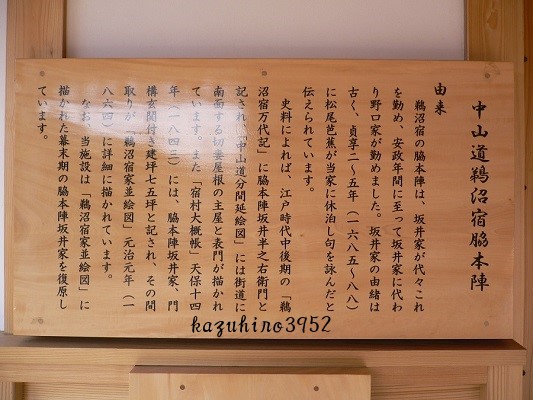 中山道鵜沼宿脇本陣
由来
鵜沼宿の脇本陣は、坂井家が代々これ
を勤め、安政年間に至って坂井家に代わ
り野口家が勤めました。坂井家の由緒は
古く、貞享二～五年（一六八五～八八）
に松尾芭蕉が当家に休泊し句を詠んだと
伝えられています。
史料によれば、江戸時代中後期の「鵜
沼宿万代記」に脇本陣坂井半之右衛門と
記され、「中山道分間延絵図」には街道に
南面する切妻屋根の主屋と表門が描かれ
ています。また「宿村大概帳」天保十四
年（一八四三）には、脇本陣坂井家、門
構玄関付き建坪七五坪と記され、その間
取りが「鵜沼宿家並絵図」元治元年（一
八六四）に詳細に描かれています。
なお、当施設は「鵜沼宿家並絵図」に
描かれた幕末期の脇本陣坂井家を復原し
ています。
kazuhiro3952